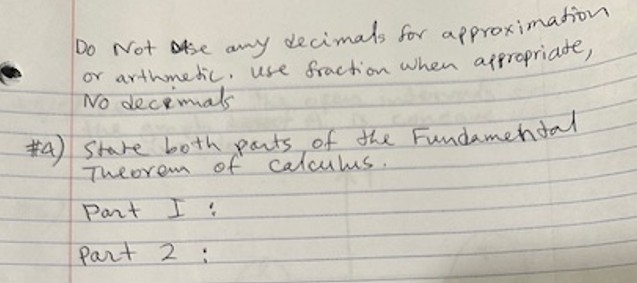 Do Not Use any decimals for approximation
or arthmetic. Use fraction when appropriate,
No decimals
#4) State both parts of the Fundamental
Theorem of calculus.
Part I :
Part 2 :